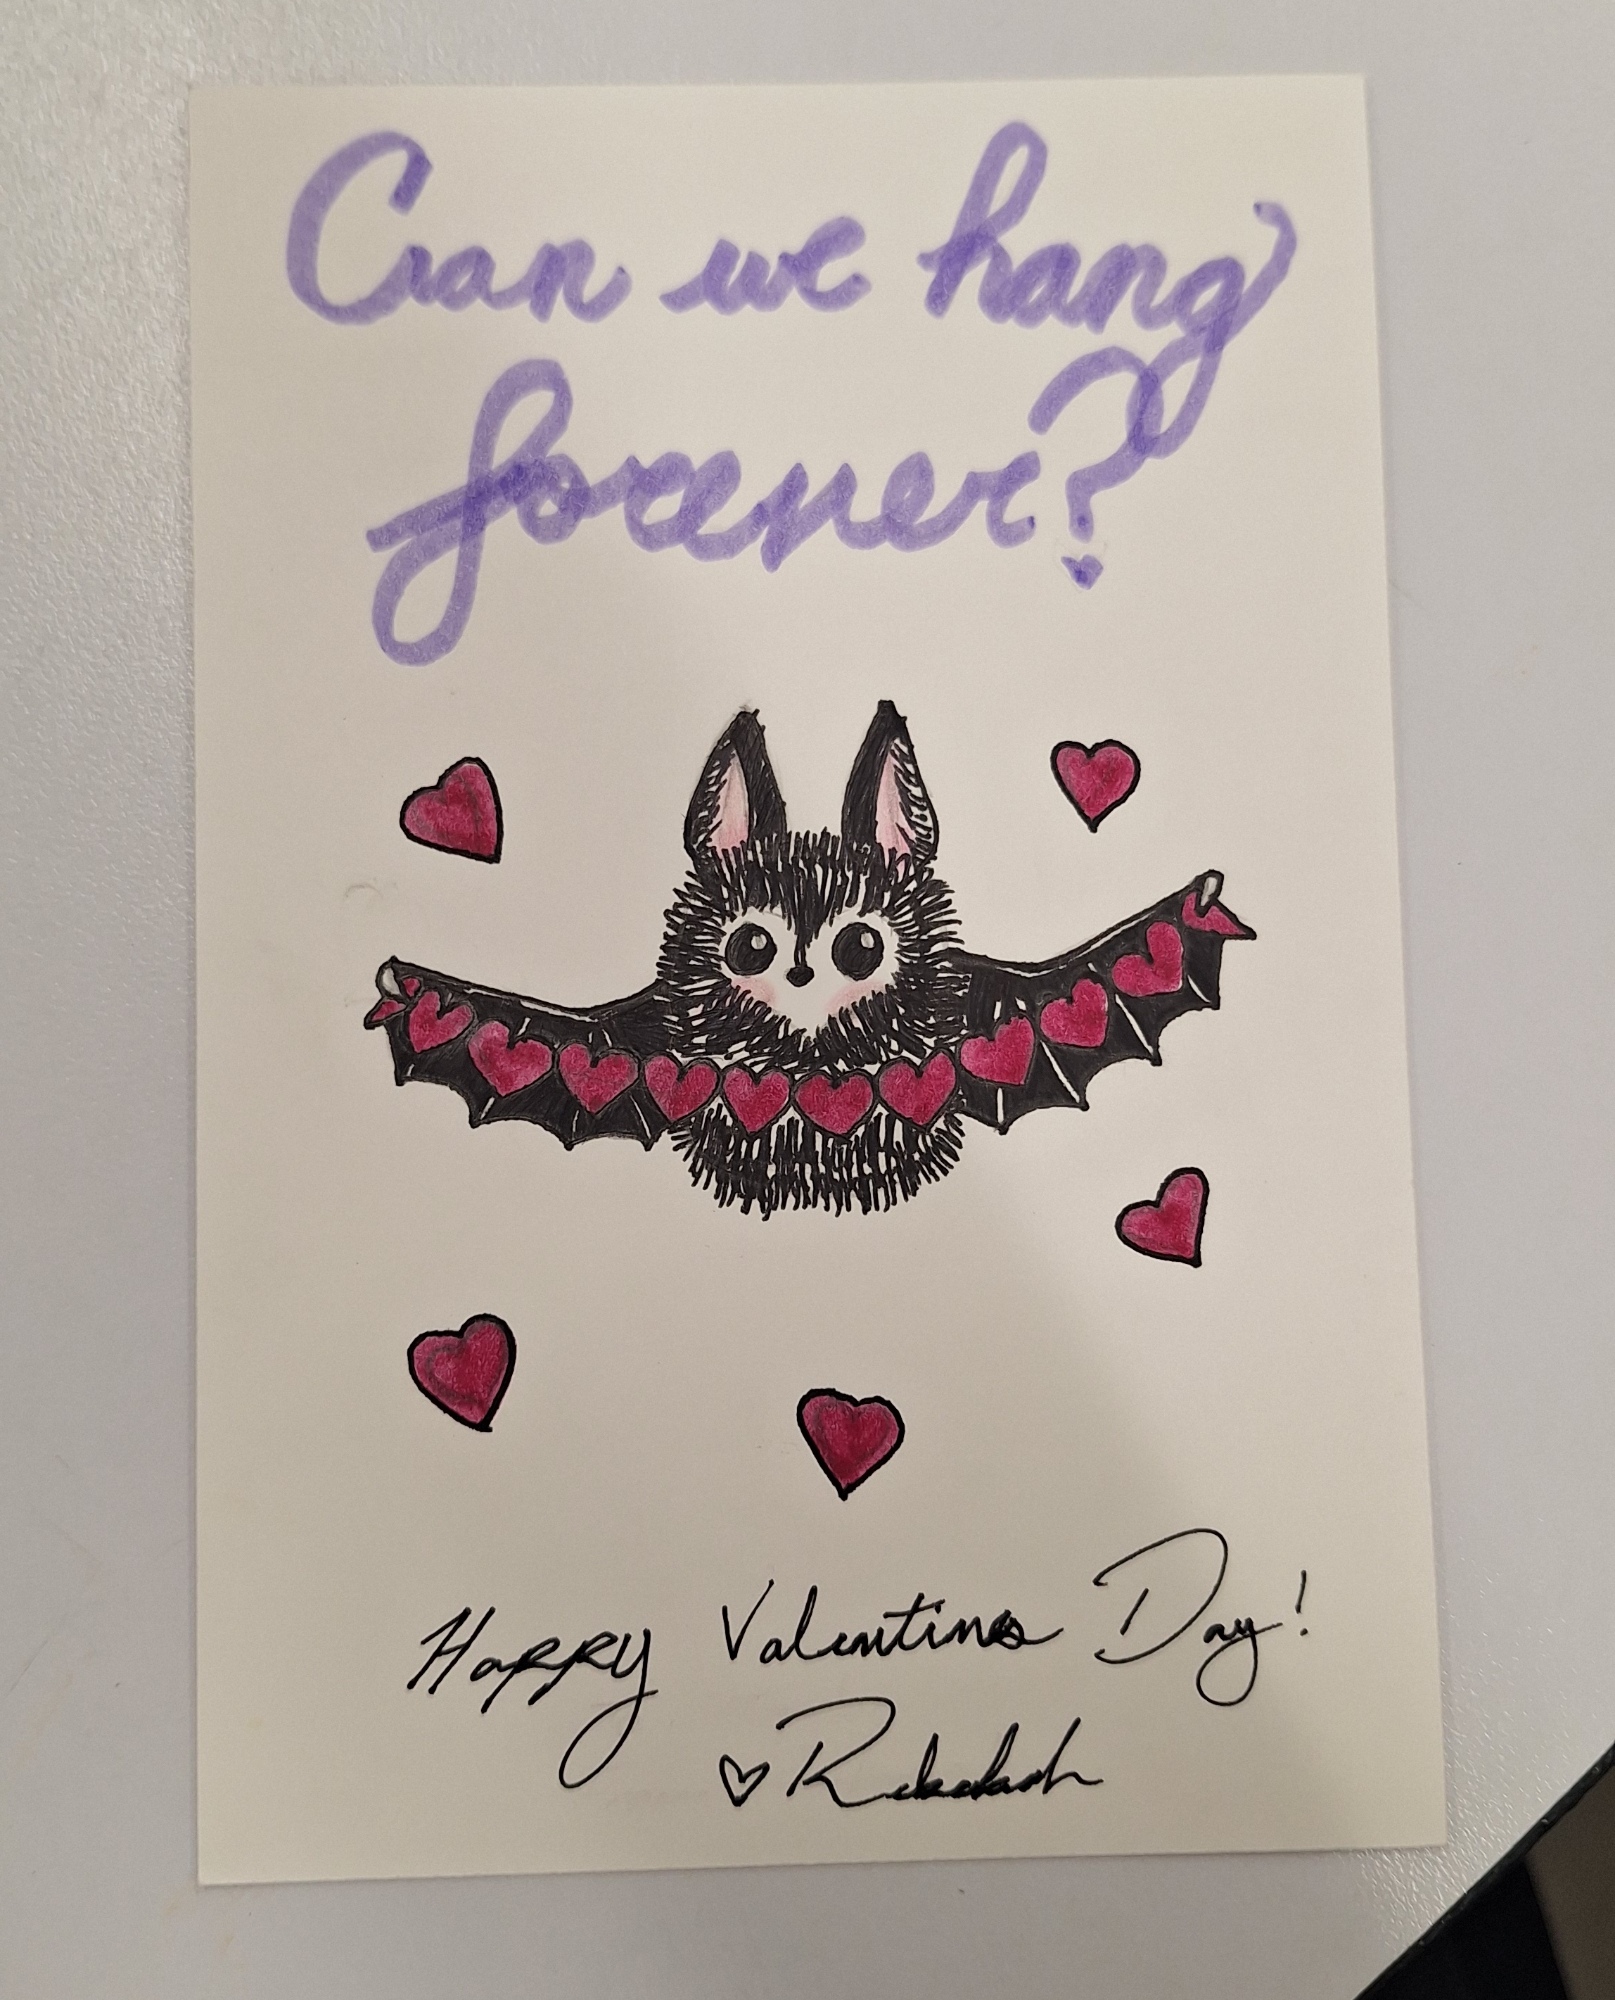 Can we hang
forever?
Happy Valentines Day!
♡Rebekah